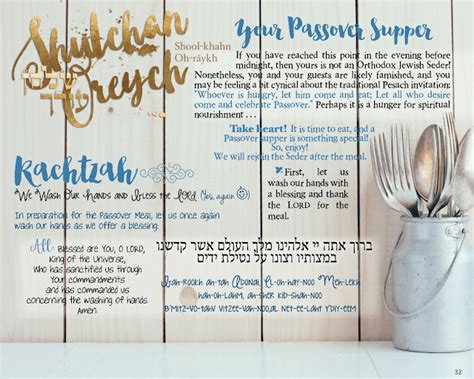 Shulchan
Oreych
Shool-khahn
Oh-räykh
Your Passover Supper
If you have reached this point in the evening before
midnight, then yours is not an Orthodox Jewish Seder!
Nonetheless, you and your guests are likely famished, and you
may be feeling a bit cynical about the traditional Pesach invitation:
"Whoever is hungry, let him come and eat; Let all who desire
come and celebrate Passover." Perhaps it is a hunger for spiritual
nourishment . . .
Take Heart! It is time to eat, and a
Passover supper is something special!
So, enjoy!
We will rejoin the Seder after the meal.
First, let us
wash our hands with
a blessing and thank
the LORD for the
meal.
Rachtzah
We Wash Our Hands and Bless the Lord (Yes, again)
In preparation for the Passover Meal, let us once again
wash our hands as we offer a blessing:
All: Blessed are You, O LORD,
King of the Universe,
Who has sanctified us through
Your commandments
and has commanded us
concerning the washing of hands.
Amen.
ברוך אתה יי אלהינו מלך העולם אשר קדשנו
במצותיו וצונו על נטילת ידים
Bah-rookh ah-tah Adonai, El-oh-hay-noo Meh-lekh
hah-oh-lahm, ah-sher kid-shah-noo
b'mitz-vo-tahv v'itzee-vah-noo, al net-ee-laht y'diy-eem
32